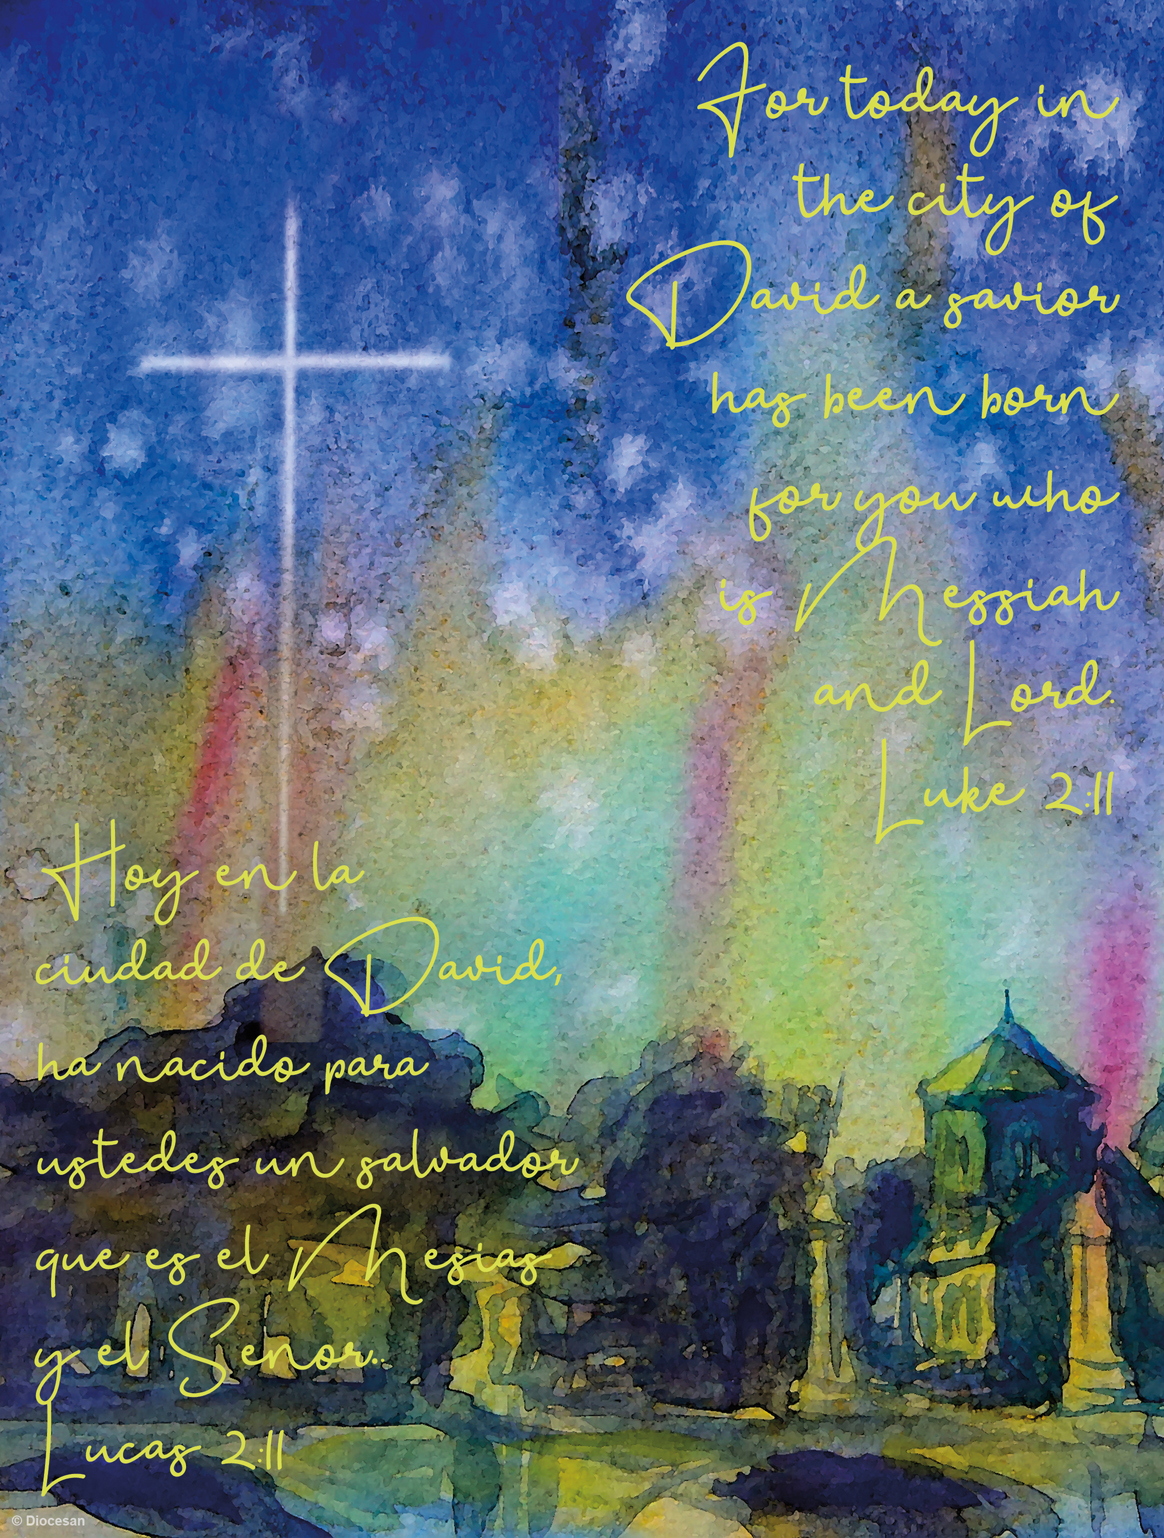 For today in
the city of
David a savior
has been born
for you who
is Messiah
and Lord.
Luke 2:11
Hoy en la
ciudad de David,
ha nacido para
ustedes un salvador
que es el Mesias
y el Senor..
Lucas 2:11
© Diocesan